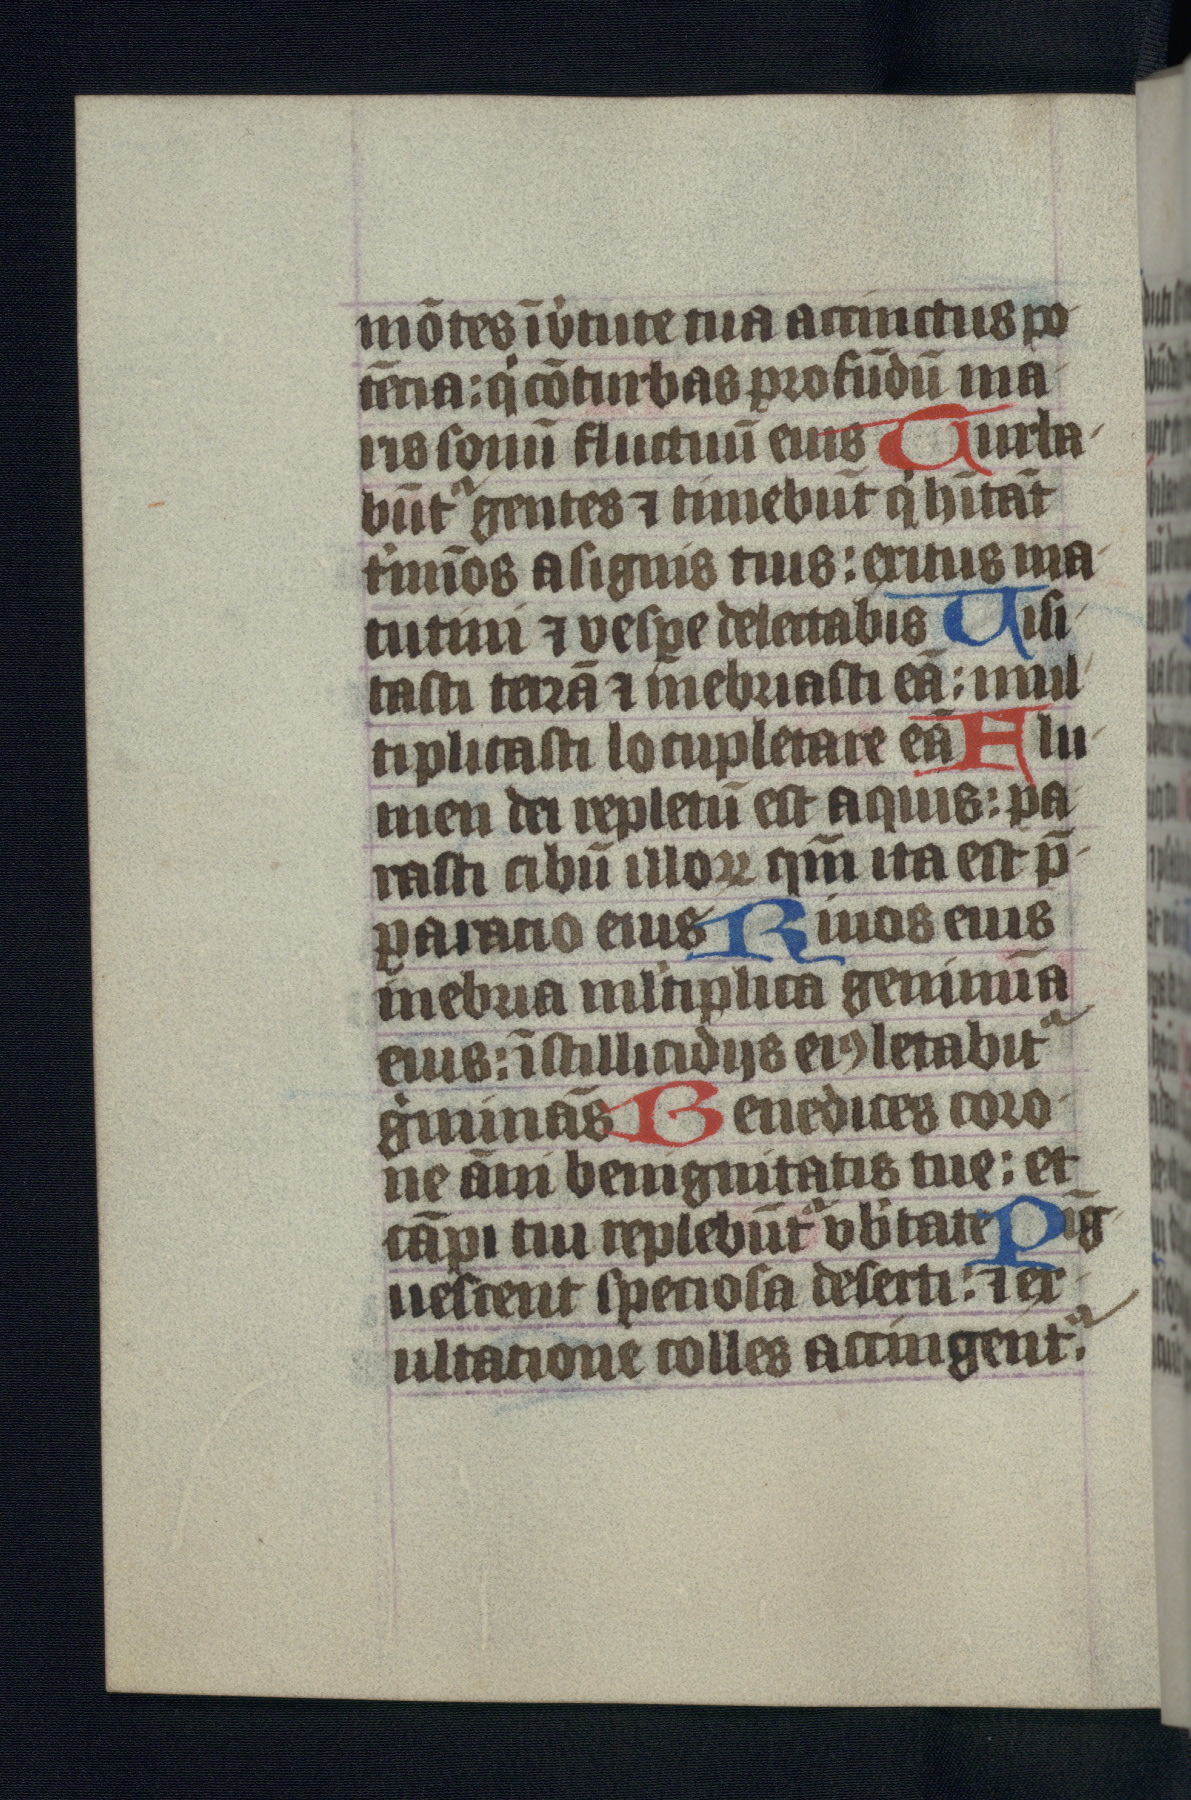 mōtes ī v̾tute tua accinctus po
tēcia: qͥ cōturbas profūdū ma
ris sonū fluctuū eius Turba
būtᷓ gentes ⁊ timebūt qͥ hītāt
t̾mīos a signis tuis: exitus ma
tutini ⁊ vesꝑe delectabis Visi
tasti terrā ⁊ inebriasti eā: mul
tiplicasti locupletare eā Flu
men dei repletū est aquis: pa
rasti cibū illoꝝ qm̄ ita est p̄
paratio eius Riuos eius
inebria ml̾tiplica genimīa
eius: ī stillicidijs eiꝰ letabitᷓ
g̾minās Benedices coro
ne āni benignitatis tue: et
cāpi tui replebūtᷓ vb̾tate Pīg
uescent speciosa deserti: ⁊ ex
ultatione colles accingentᷓ.